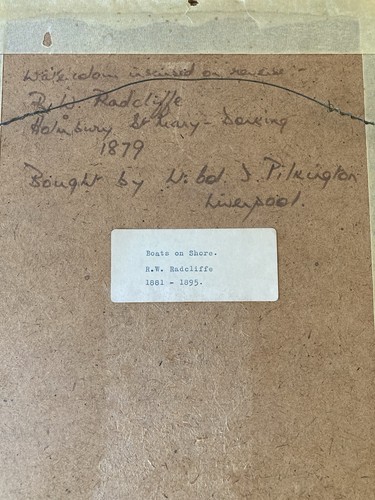 Watercolour inscribed on reverse :-
R. W. Radcliffe
Holmbury St Mary - Dorking
1879
Bought by W. J. Pilkington
Liverpool.
Boats on Shore.
R.W. Radcliffe
1881 - 1895.